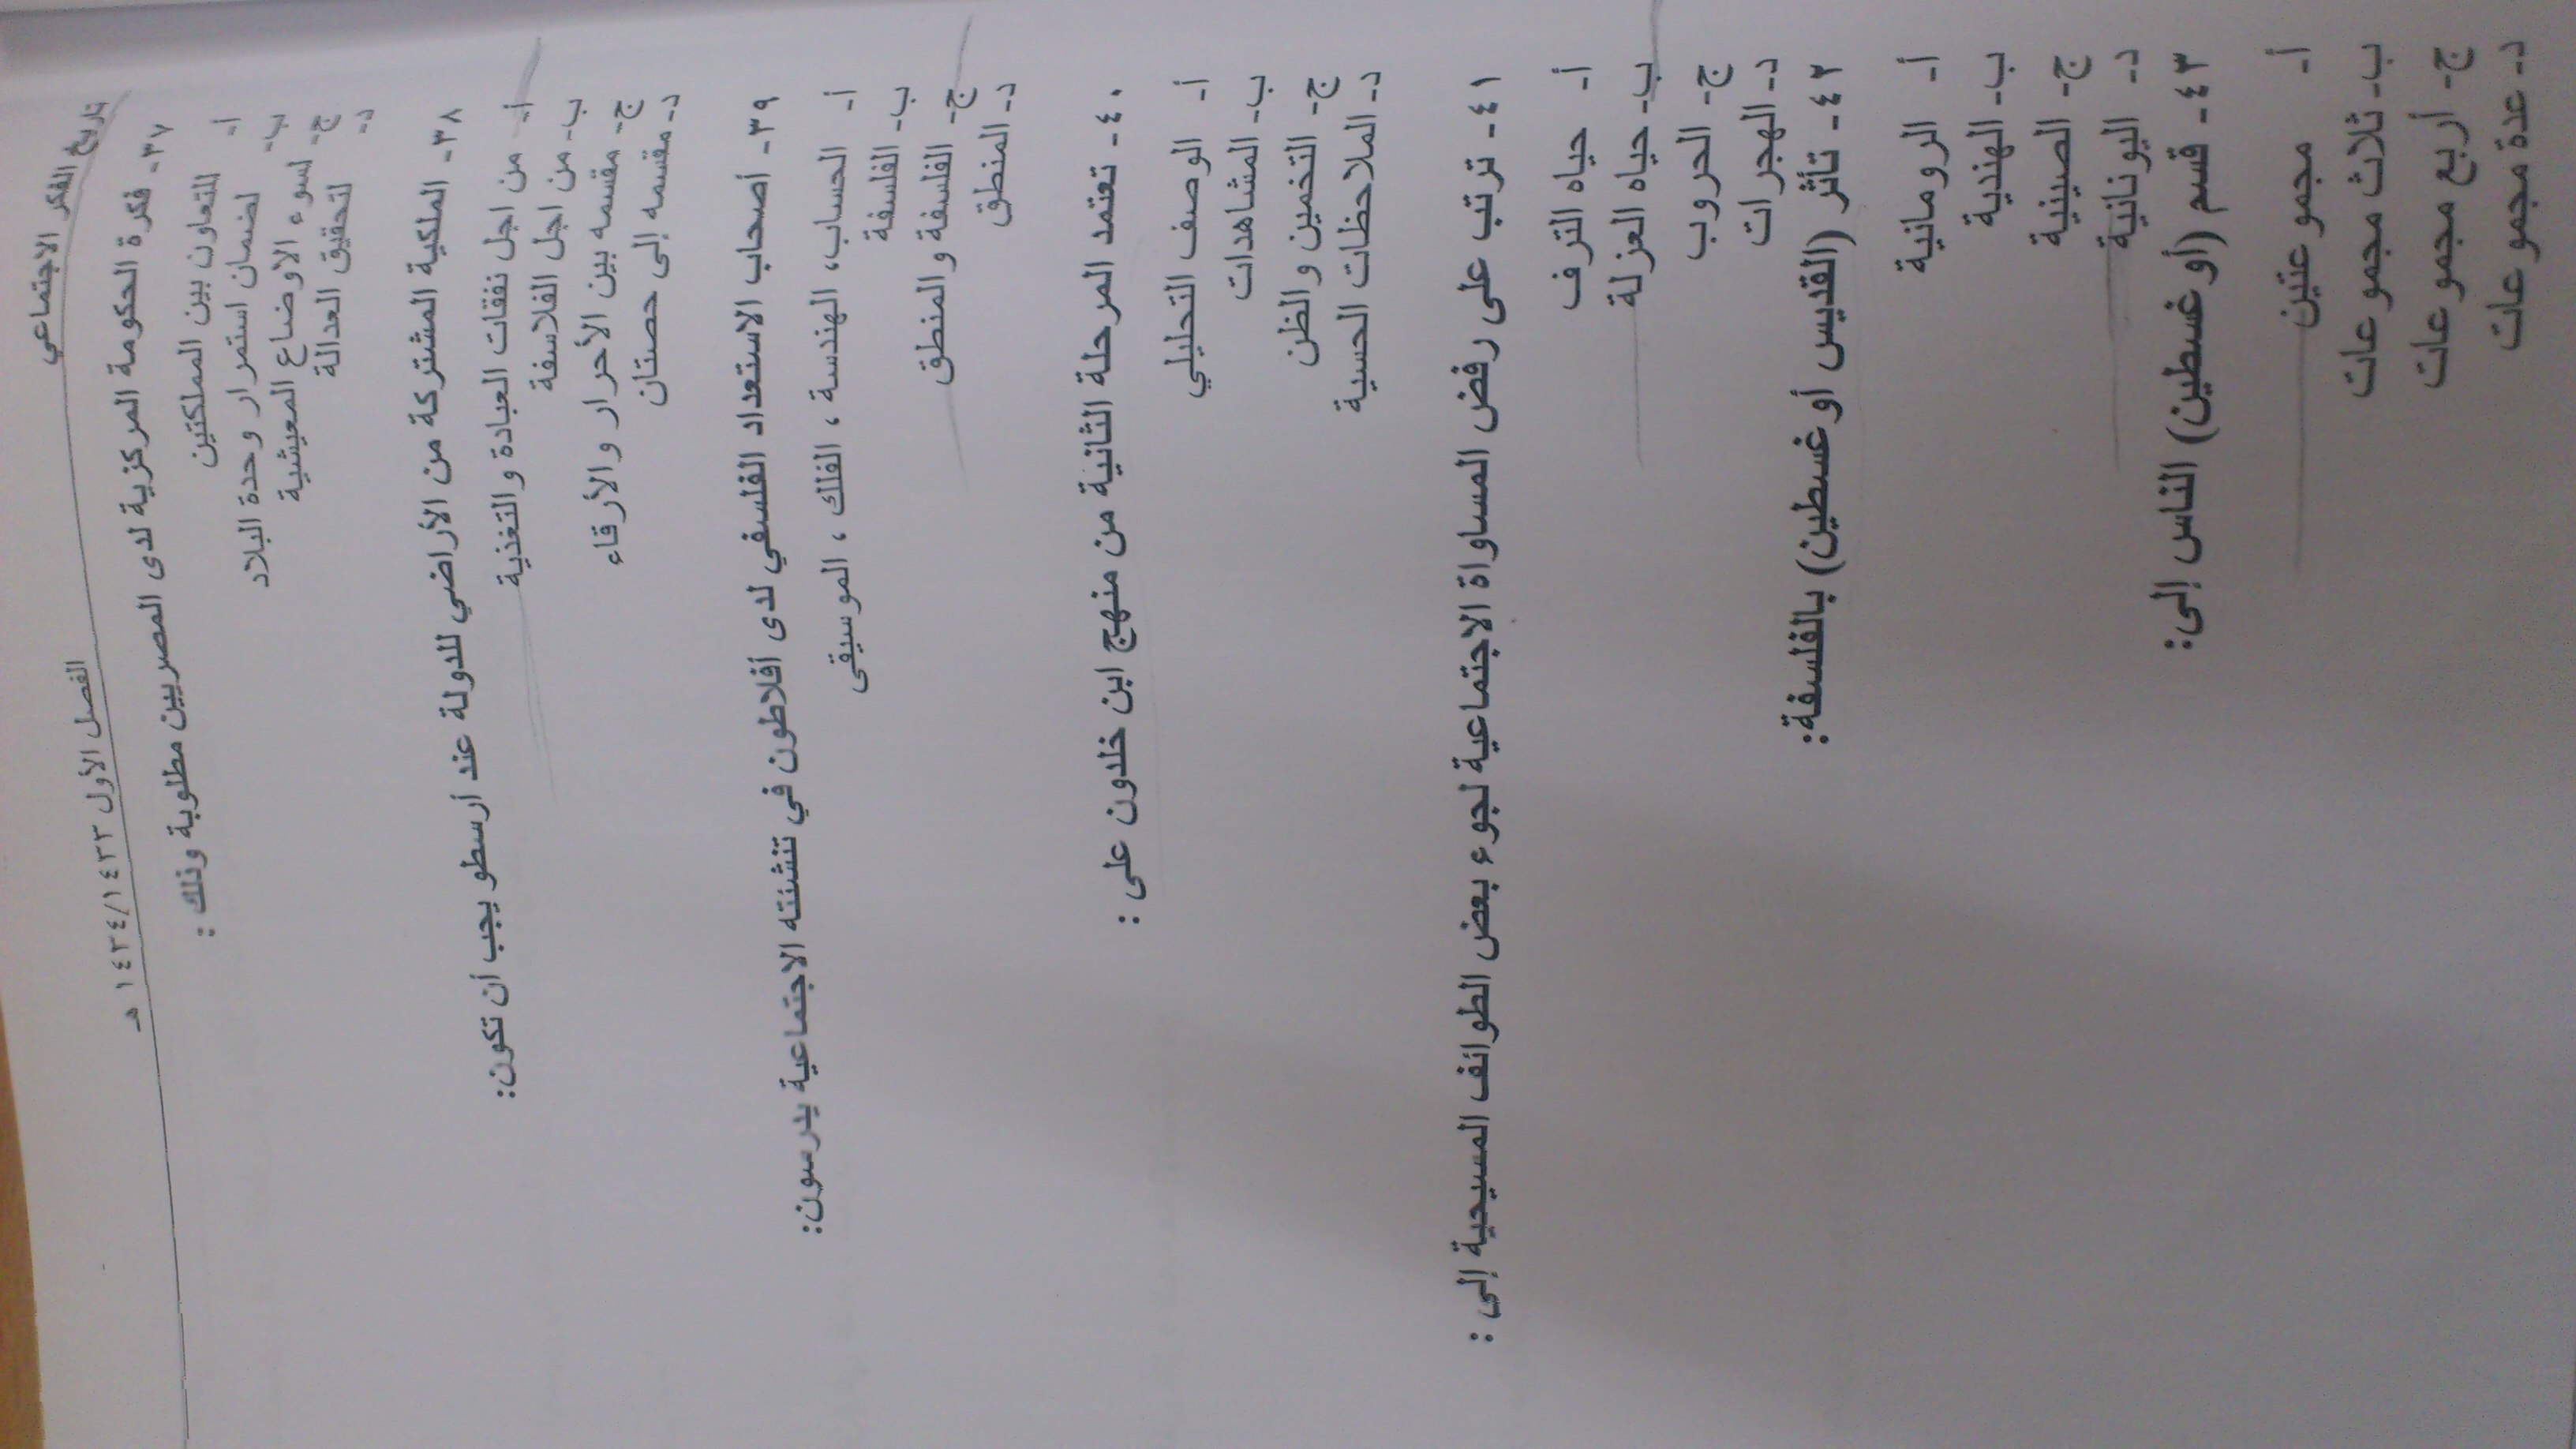 تاريخ الفكر الاجتماعي الفصل الأول ١٤٣٣/ ١٤٣٤ هـ
٣٧- فكرة الحكومة المركزية لدى المصريين مطلوبة وذلك :
أ- للتعاون بين المملكتين
ب- لضمان استمرار وحدة البلاد
ج- لسوء الاوضاع المعيشية
د- لتحقيق العدالة
٣٨- الملكية المشتركة من الأراضي للدولة عند أرسطو يجب أن تكون:
أ- من اجل نفقات العبادة والتغذية
ب- من اجل الفلاسفة
ج- مقسمه بين الأحرار والأرقاء
د- مقسمه إلى حصتان
٣٩- أصحاب الاستعداد الفلسفي لدى أفلاطون في تنشئته الاجتماعية يدرسون:
أ- الحساب، الهندسة ، الفلك ، الموسيقى
ب- الفلسفة
ج- الفلسفة والمنطق
د- المنطق
٤٠- تعتمد المرحلة الثانية من منهج ابن خلدون على :
أ- الوصف التحليلي
ب- المشاهدات
ج- التخمين والظن
د- الملاحظات الحسية
٤١- ترتب على رفض المساواة الاجتماعية لجوء بعض الطوائف المسيحية إلى :
أ- حياه الترف
ب- حياه العزلة
ج- الحروب
د- الهجرات
٤٢- تأثر (القديس أوغسطين) بالفلسفة:
أ- الرومانية
ب- الهندية
ج- الصينية
د- اليونانية
٤٣- قسم (أوغسطين) الناس إلى:
أ- مجموعتين
ب- ثلاث مجموعات
ج- أربع مجموعات
د- عدة مجموعات